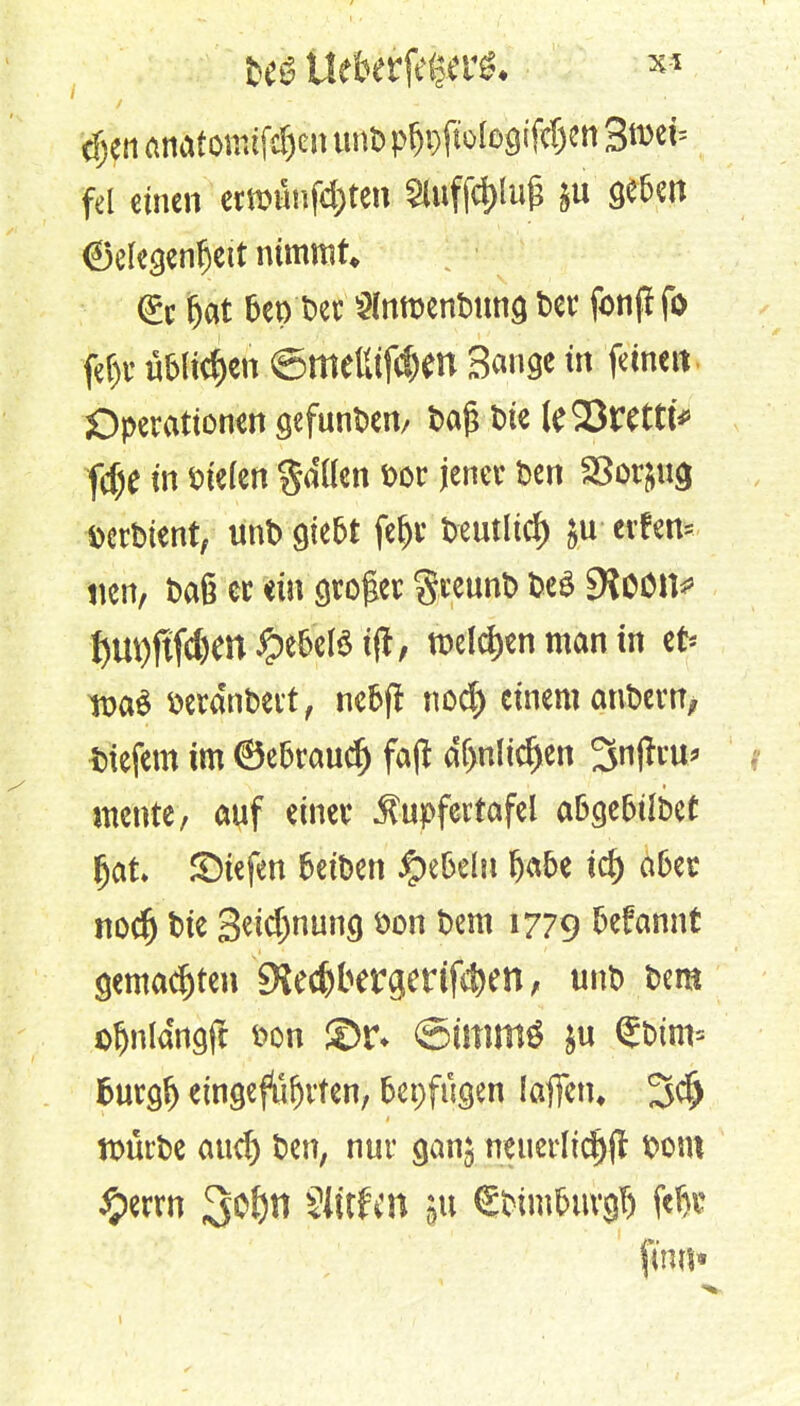 des Uebersetzers. XI
chen anatomischen und physiologischen Zwei=
fel einen erwünschten Aufschluß zu geben
Gelegenheit nimmt.
Er hat bey der Anwendung der sonst so
sehr üblichen Smellischen Zange in seinen
Operationen gefunden, daß die le Bretti=
sche in vielen Fällen vor jener den Vorzug
verdient, und giebt sehr deutlich zu erken=
nen, daß er ein großer Freund des Roon=
huysischen Hebels ist, welchen man in et=
was verändert, nebst noch einem andern,
diesem im Gebrauch fast ähnlichen Instru=
mente, auf einer Kupfertafel abgebildet
hat. Diesen beiden Hebeln habe ich aber
noch die Zeichnung von dem 1779 bekannt
gemachten Rechbergerischen, und dem
ohnlängst von Dr. Simms zu Edim=
burgh eingeführten, beyfügen lassen. Ich
würde auch den, nur ganz neuerlichst vom
Herrn John Aitken zu Edimburgh sehr
sinn=